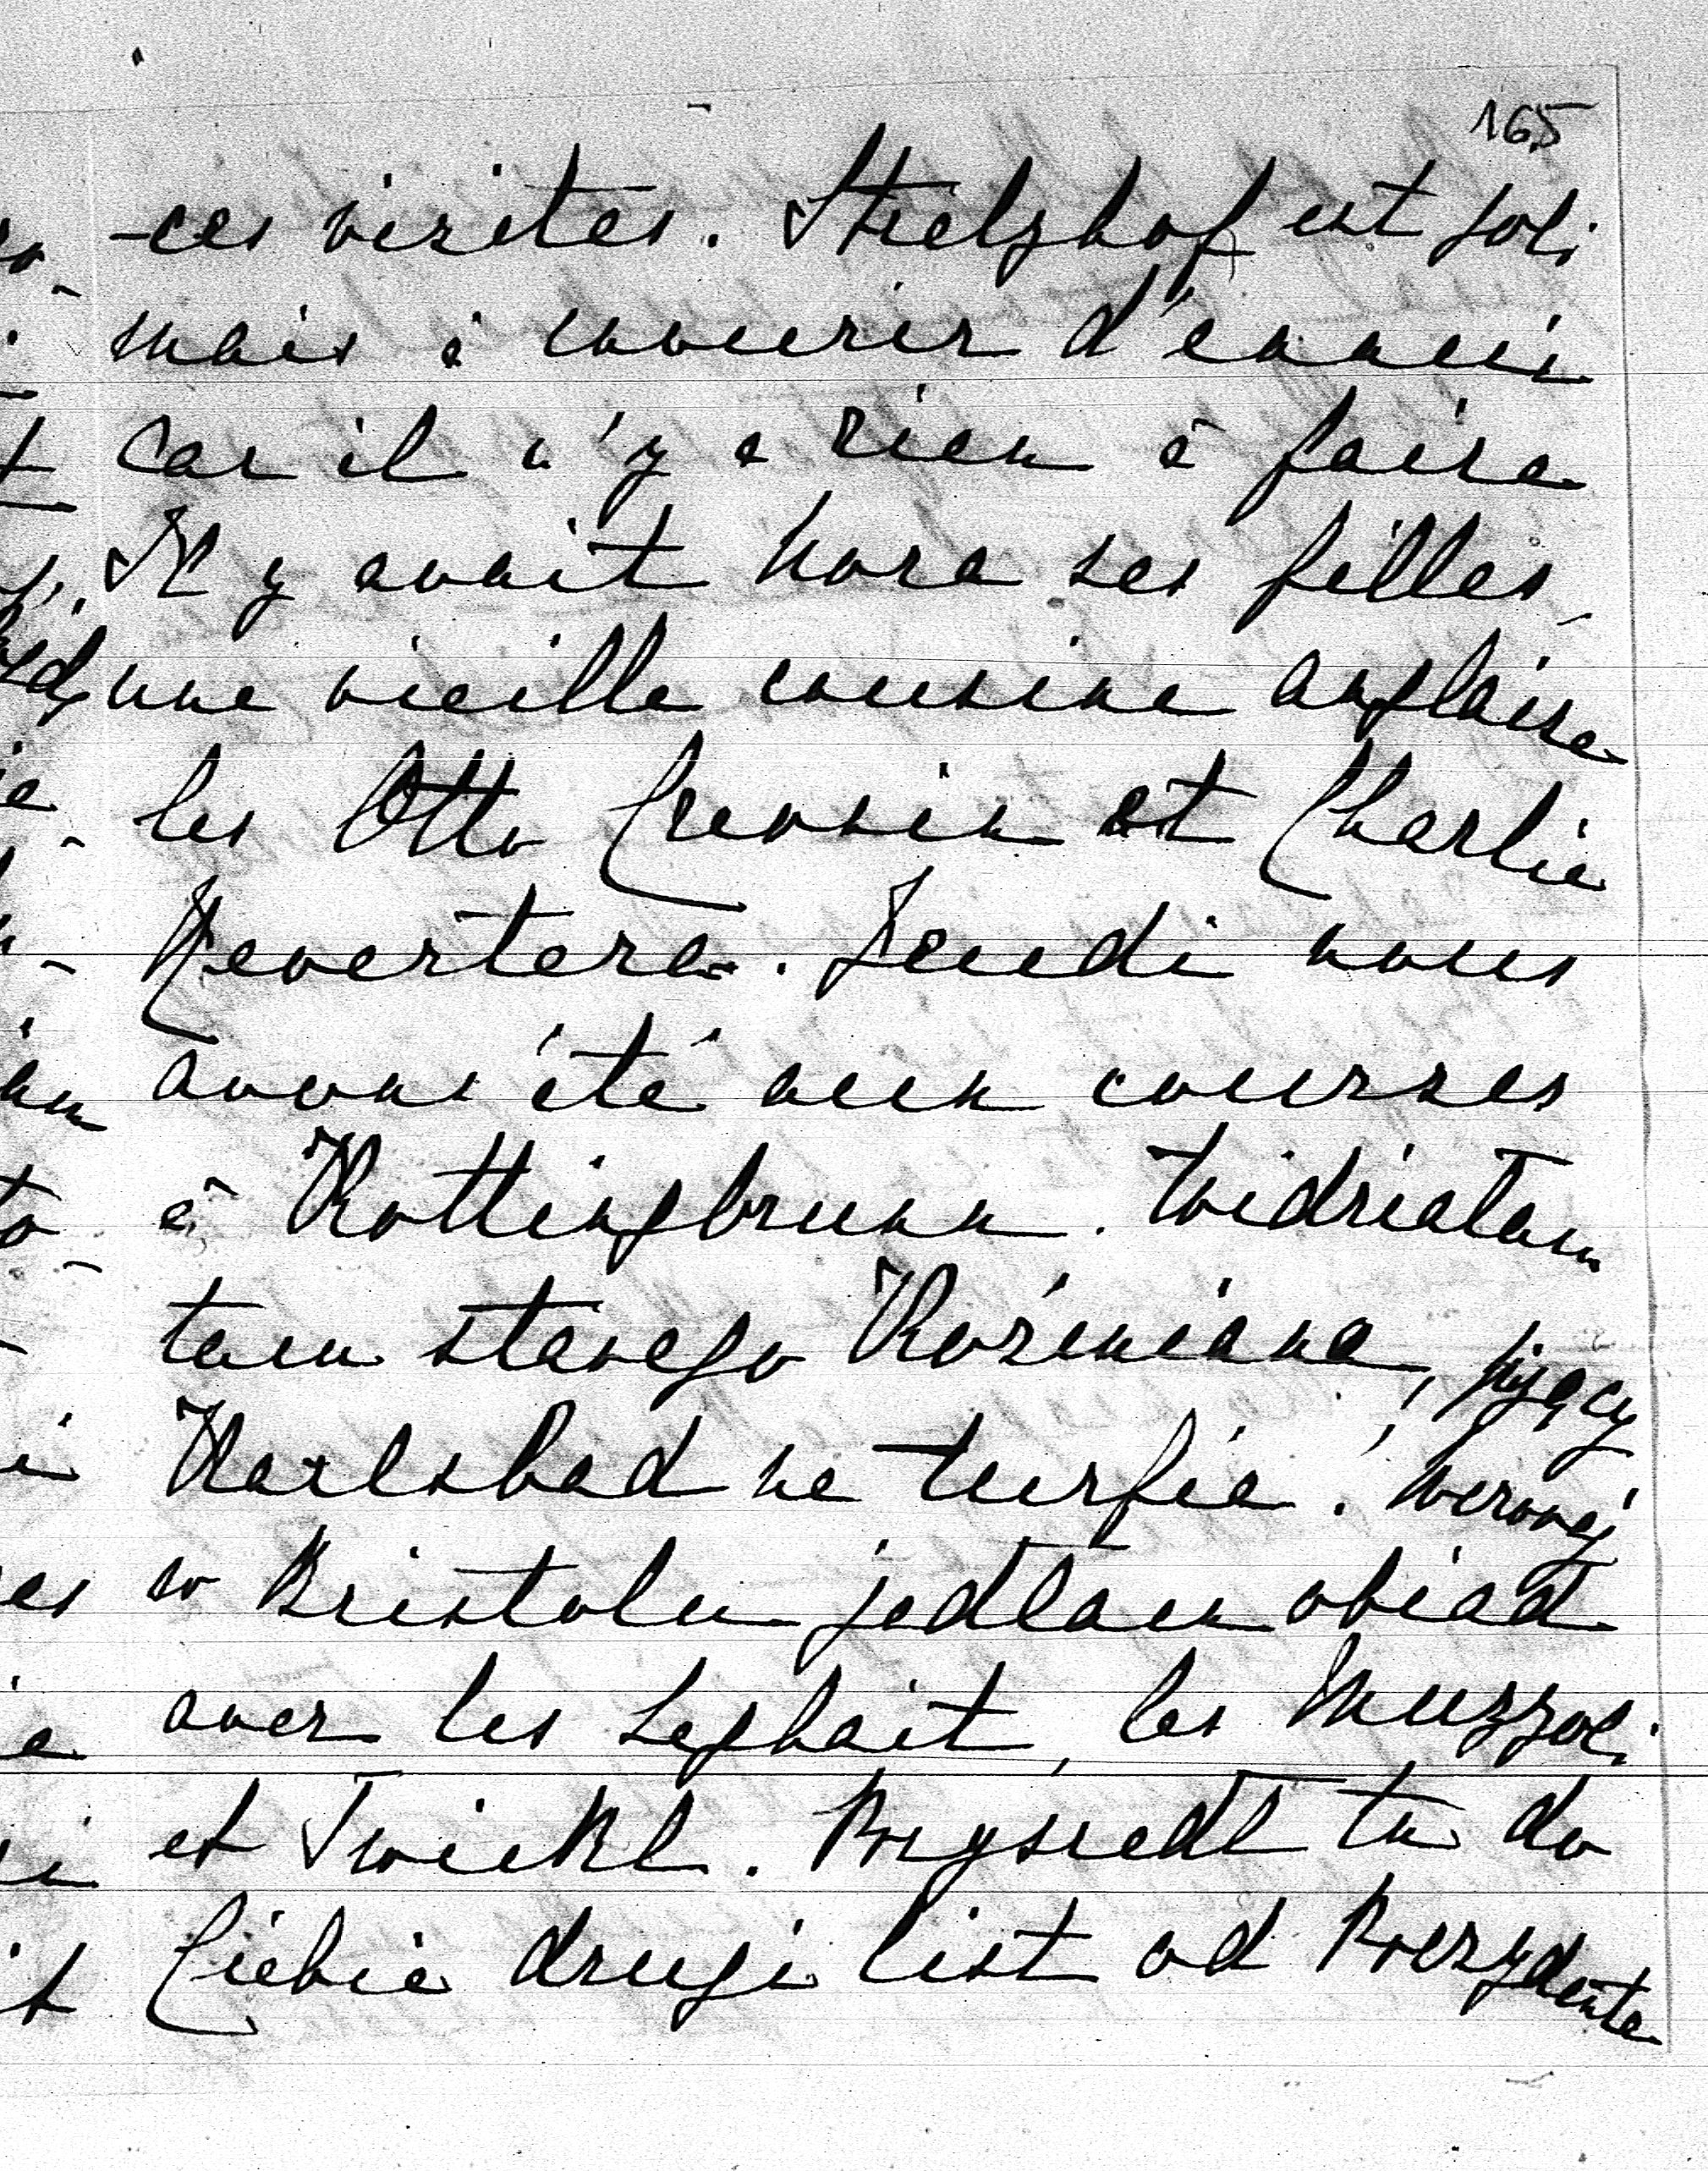 165
-ces visites. Strelzhof est joli
mais à mourir d'ennui
car il n'y a rien à faire
Il y avait Nora ses filles,
une vieille cousine anglaise
les Otto Czernin et Charlie
Revertera. Jeudi nous
avons été aux courses
à Kottingbrunn. Widziałam
tam starego Koźmiana, pijący
Karlsbad na turfie! Wczoraj
w Bristolu jadłam obiad
avec les Lephait, les
et Twickl. Przyszedł tu do
Ciebie drugi list od Prezydenta